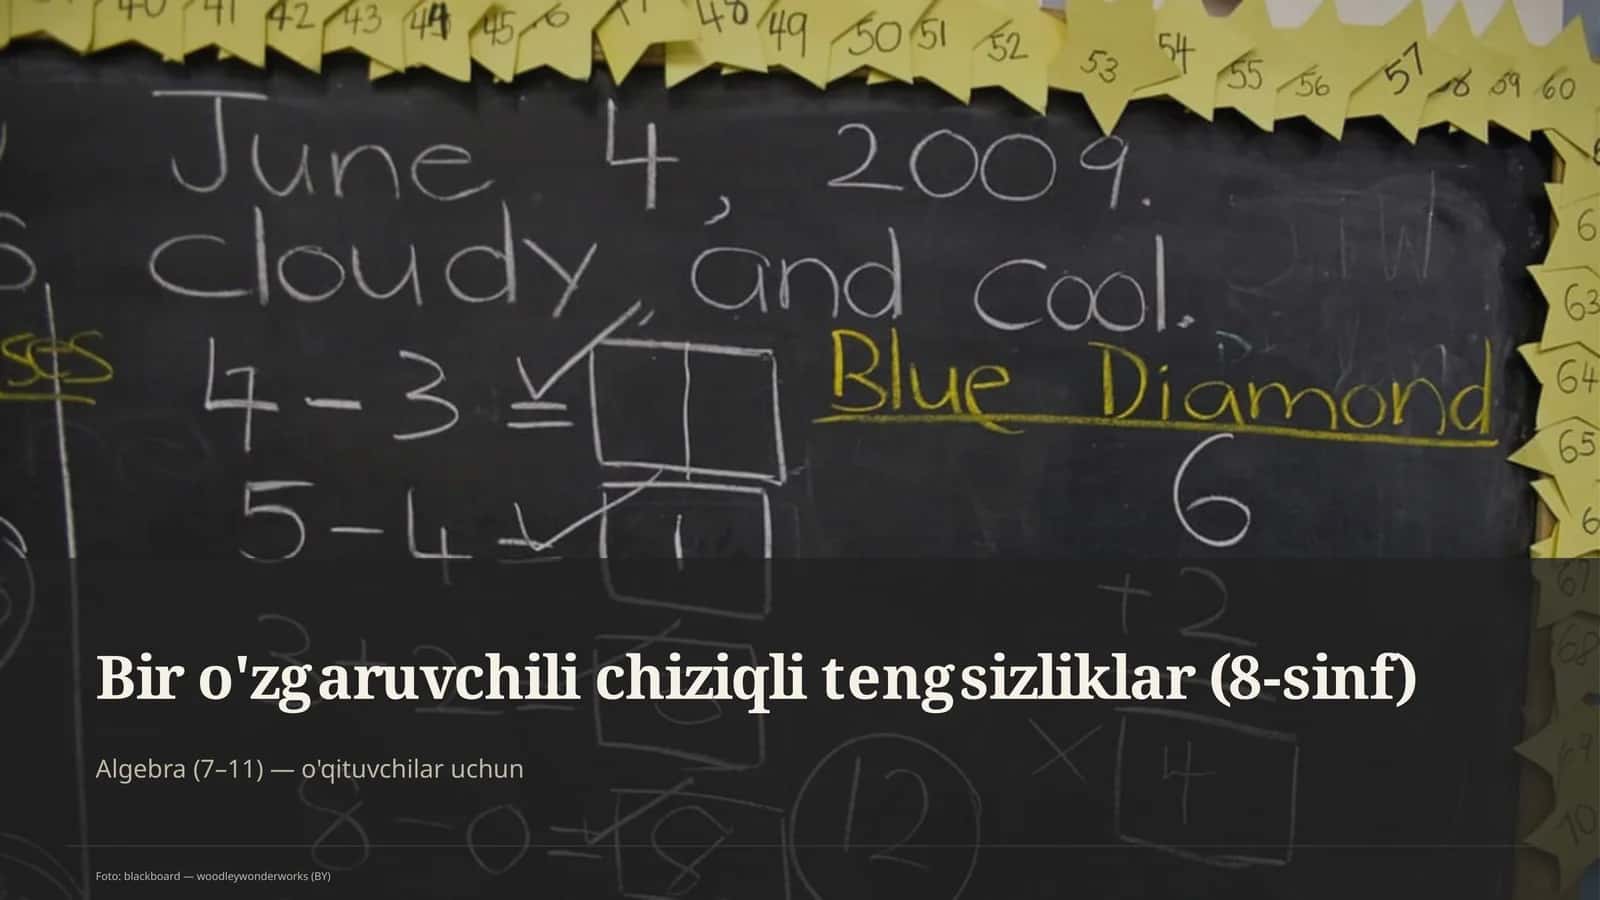 40 41 42 43 44 45 48 49 50 51 52 53 54 55 56 57 58 59 60
June 4, 2009.
cloudy, and cool.
ses
4 - 3 =
Blue Diamond
5 - 4 = 1
6
+2
3 + 2 =
8 - 0 = 8
12
× 4
63
64
65
67
68
69
70
Bir o'zgaruvchili chiziqli tengsizliklar (8-sinf)
Algebra (7–11) — o'qituvchilar uchun
Foto: blackboard — woodleywonderworks (BY)